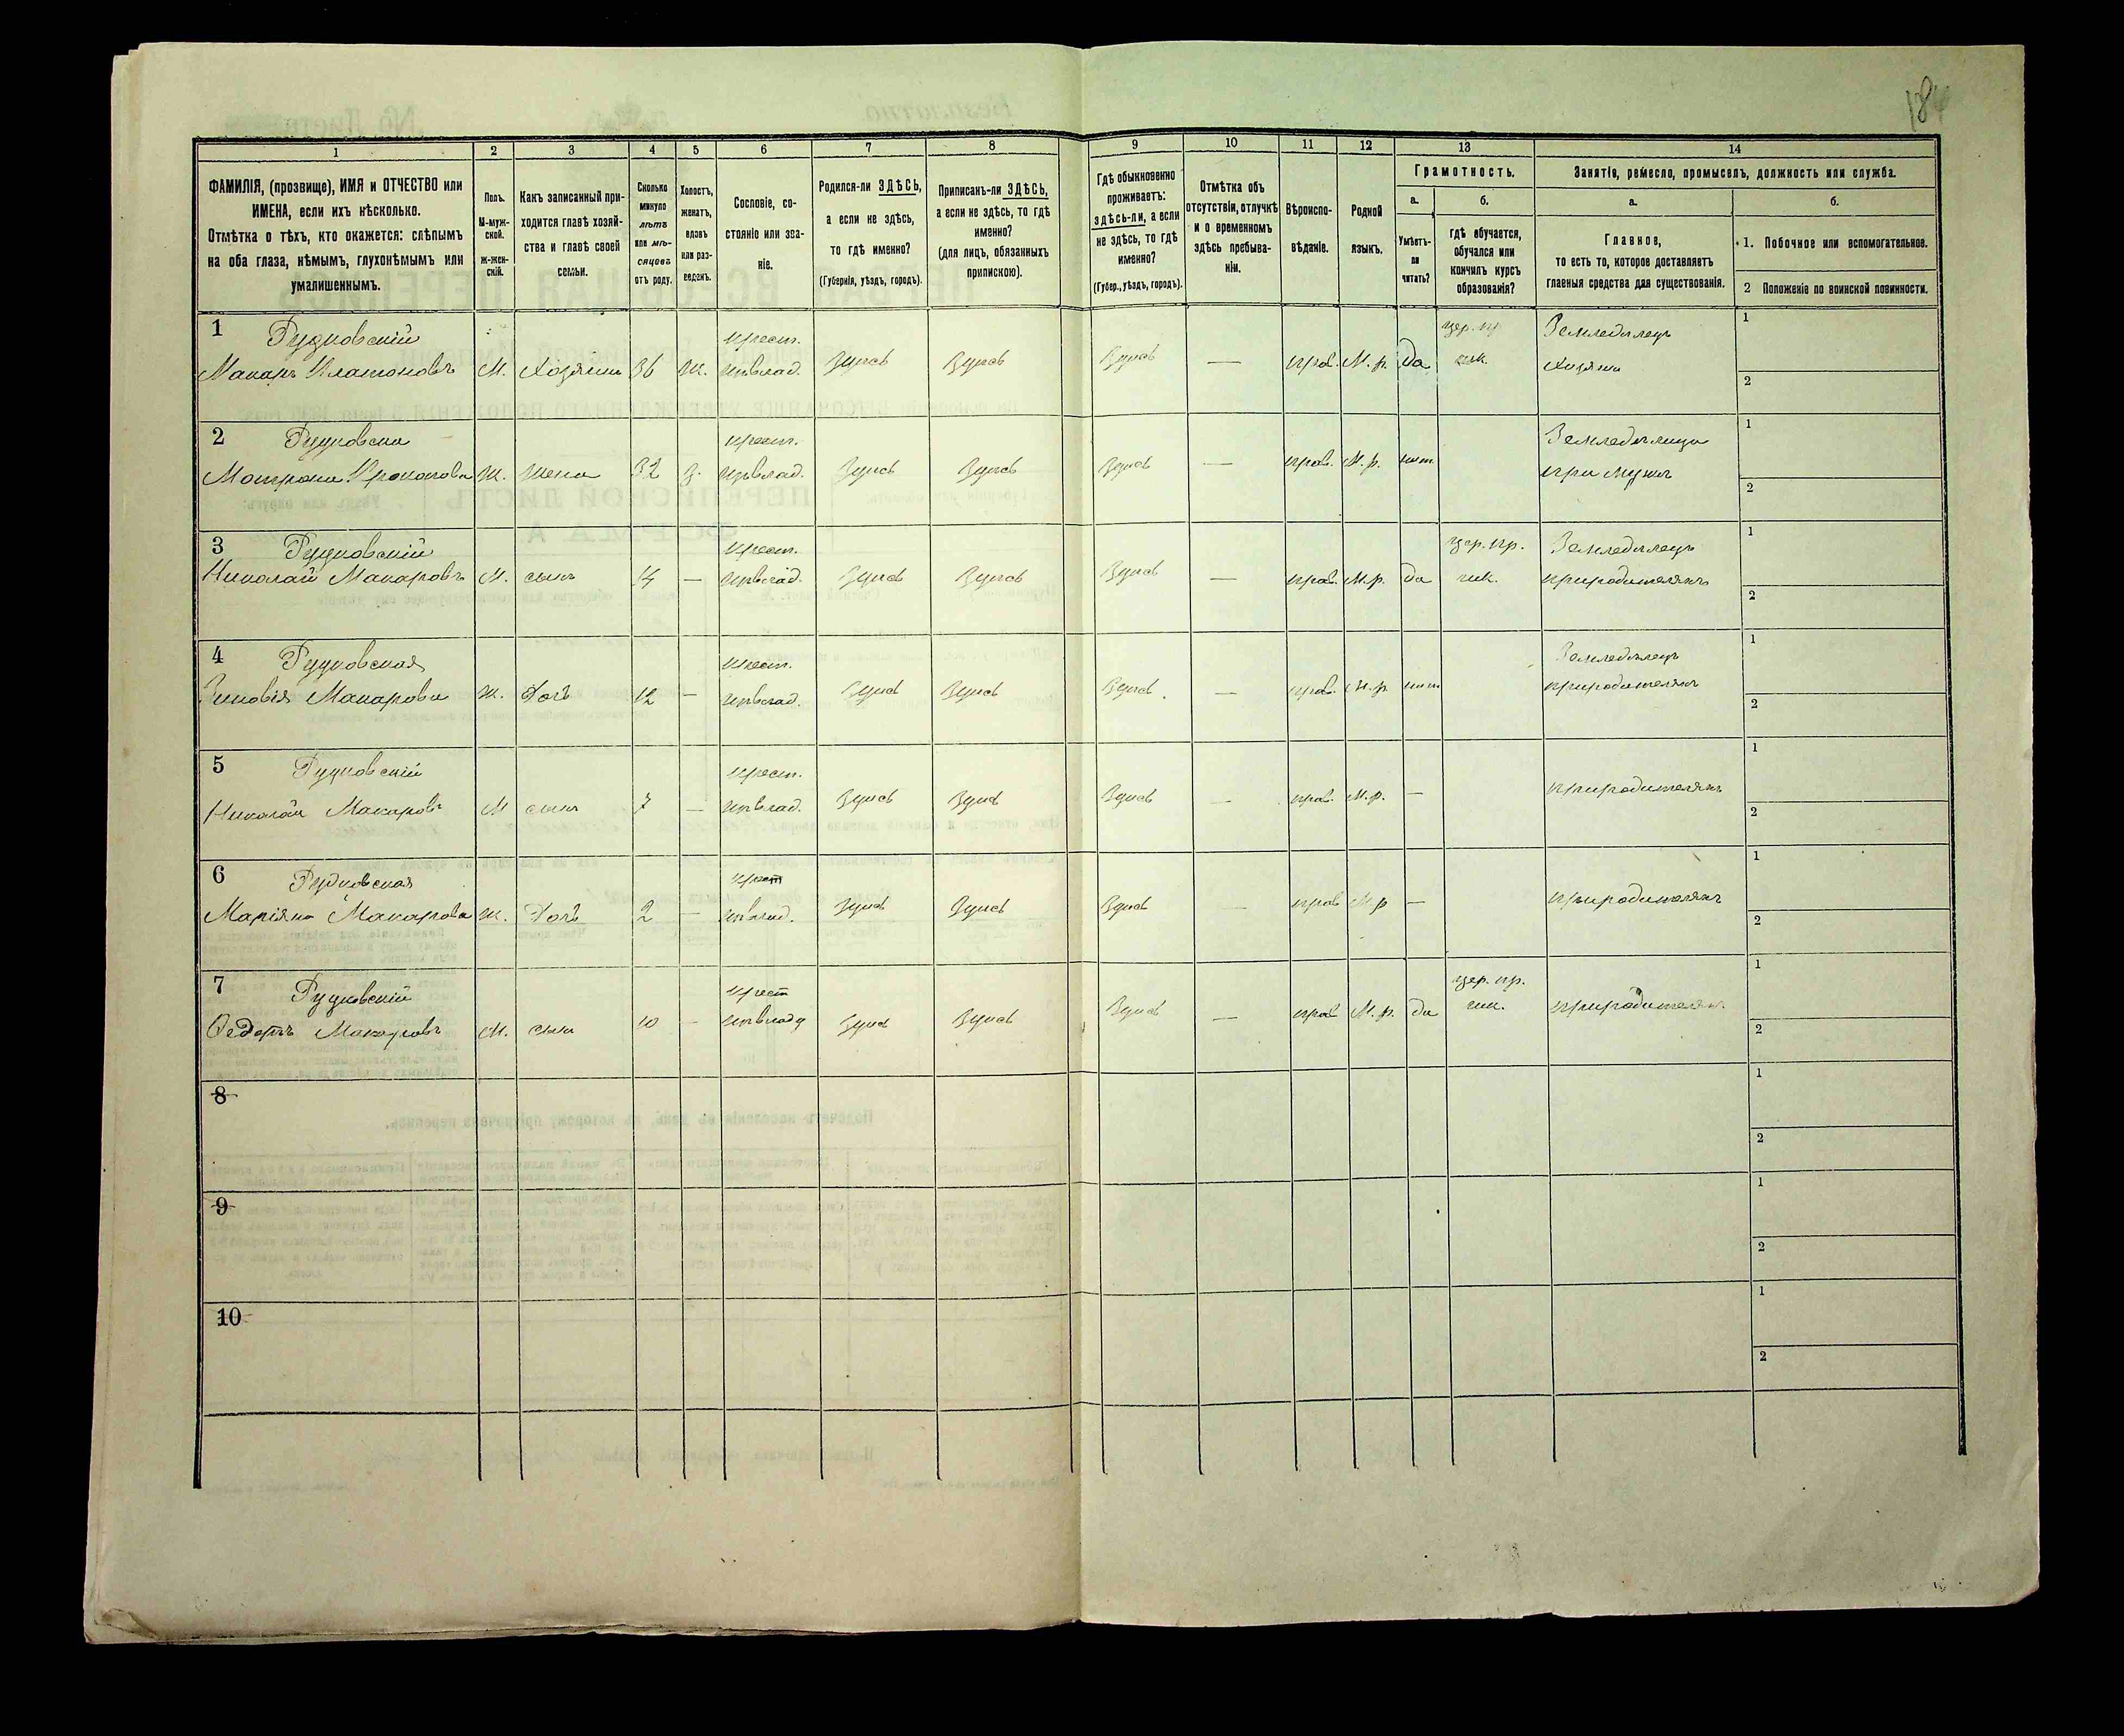 184
1
2
3
4
5
6
7
8
9
10
11
12
13
14
ФАМИЛІЯ, (прозвище), ИМЯ и ОТЧЕСТВО или
ИМЕНА, если ихъ нѣсколько.
Отмѣтка о тѣхъ, кто окажется: слѣпымъ
на оба глаза, нѣмымъ, глухонѣмымъ или
умалишеннымъ.
Полъ.
М-муж-
ской.
Ж-жен-
скій.
Какъ записанный при-
ходится главѣ хозяй-
ства и главѣ своей
семьи.
Сколько
минуло
лѣтъ
или мѣ-
сяцевъ
отъ роду.
Холостъ,
женатъ,
вдовъ
или раз-
веденъ.
Сословіе, со-
стояніе или зва-
ніе.
Родился-ли ЗДѢСЬ,
а если не здѣсь,
то гдѣ именно?
(Губернія, уѣздъ, городъ).
Приписанъ-ли ЗДѢСЬ,
а если не здѣсь, то гдѣ
именно?
(для лицъ, обязанныхъ
припискою).
Гдѣ обыкновенно
проживаетъ:
здѣсь-ли, а если
не здѣсь, то гдѣ
именно?
(Губер., уѣздъ, городъ).
Отмѣтка объ
отсутствіи, отлучкѣ
и о временномъ
здѣсь пребыва-
ніи.
Вѣроиспо-
вѣданіе.
Родной
языкъ.
Грамотность.
а.
Умѣетъ-
ли
читать?
б.
гдѣ обучается,
обучался или
кончилъ курсъ
образованія?
Занятіе, ремесло, промыселъ, должность или служба.
а.
Главное,
то есть то, которое доставляетъ
главныя средства для существованія.
б.
1. Побочное или вспомогательное.
2 Положеніе по воинской повинности.
1 Рудковскій крест. цер. пр. Земледѣлецъ 1
Макаръ Платоновъ М. Хозяинъ 36 Ж. Здѣсь Здѣсь Здѣсь — прав. М. р. да шк. Хозяинъ
2
2 Рудковска крест. Земледѣлица 1
Матрона Прокопова Ж. жена 32 З. Здѣсь Здѣсь Здѣсь — прав. М. р. нѣт при мужѣ
2
3 Рудковскій крест. цер. пр. Земледѣлецъ 1
Николай Макаровъ М. сынъ 14 — Здѣсь Здѣсь Здѣсь — прав. М. р. да шк. при родителяхъ
2
4 Рудковская крест. Земледѣлецъ 1
Зиновія Макарова Ж. дочь 12 — Здѣсь Здѣсь Здѣсь. — прав. М. р. нѣт при родителяхъ
2
5 Рудковскій крест. 1
Николай Макаровъ М сынъ 7 — Здѣсь Здѣсь Здѣсь — прав. М. р. — при родителяхъ
2
6 Рудковская крест 1
Маріяна Макарова Ж. дочь 2 — Здѣсь Здѣсь Здѣсь — прав М р — при родителяхъ
2
7 Рудковскій крест цер. пр. 1
Федотъ Макаровъ М. сынъ 10 — Здѣсь Здѣсь Здѣсь — прав М. р. да шк. при родителяхъ
2
8 1
2
9 1
2
10 1
2